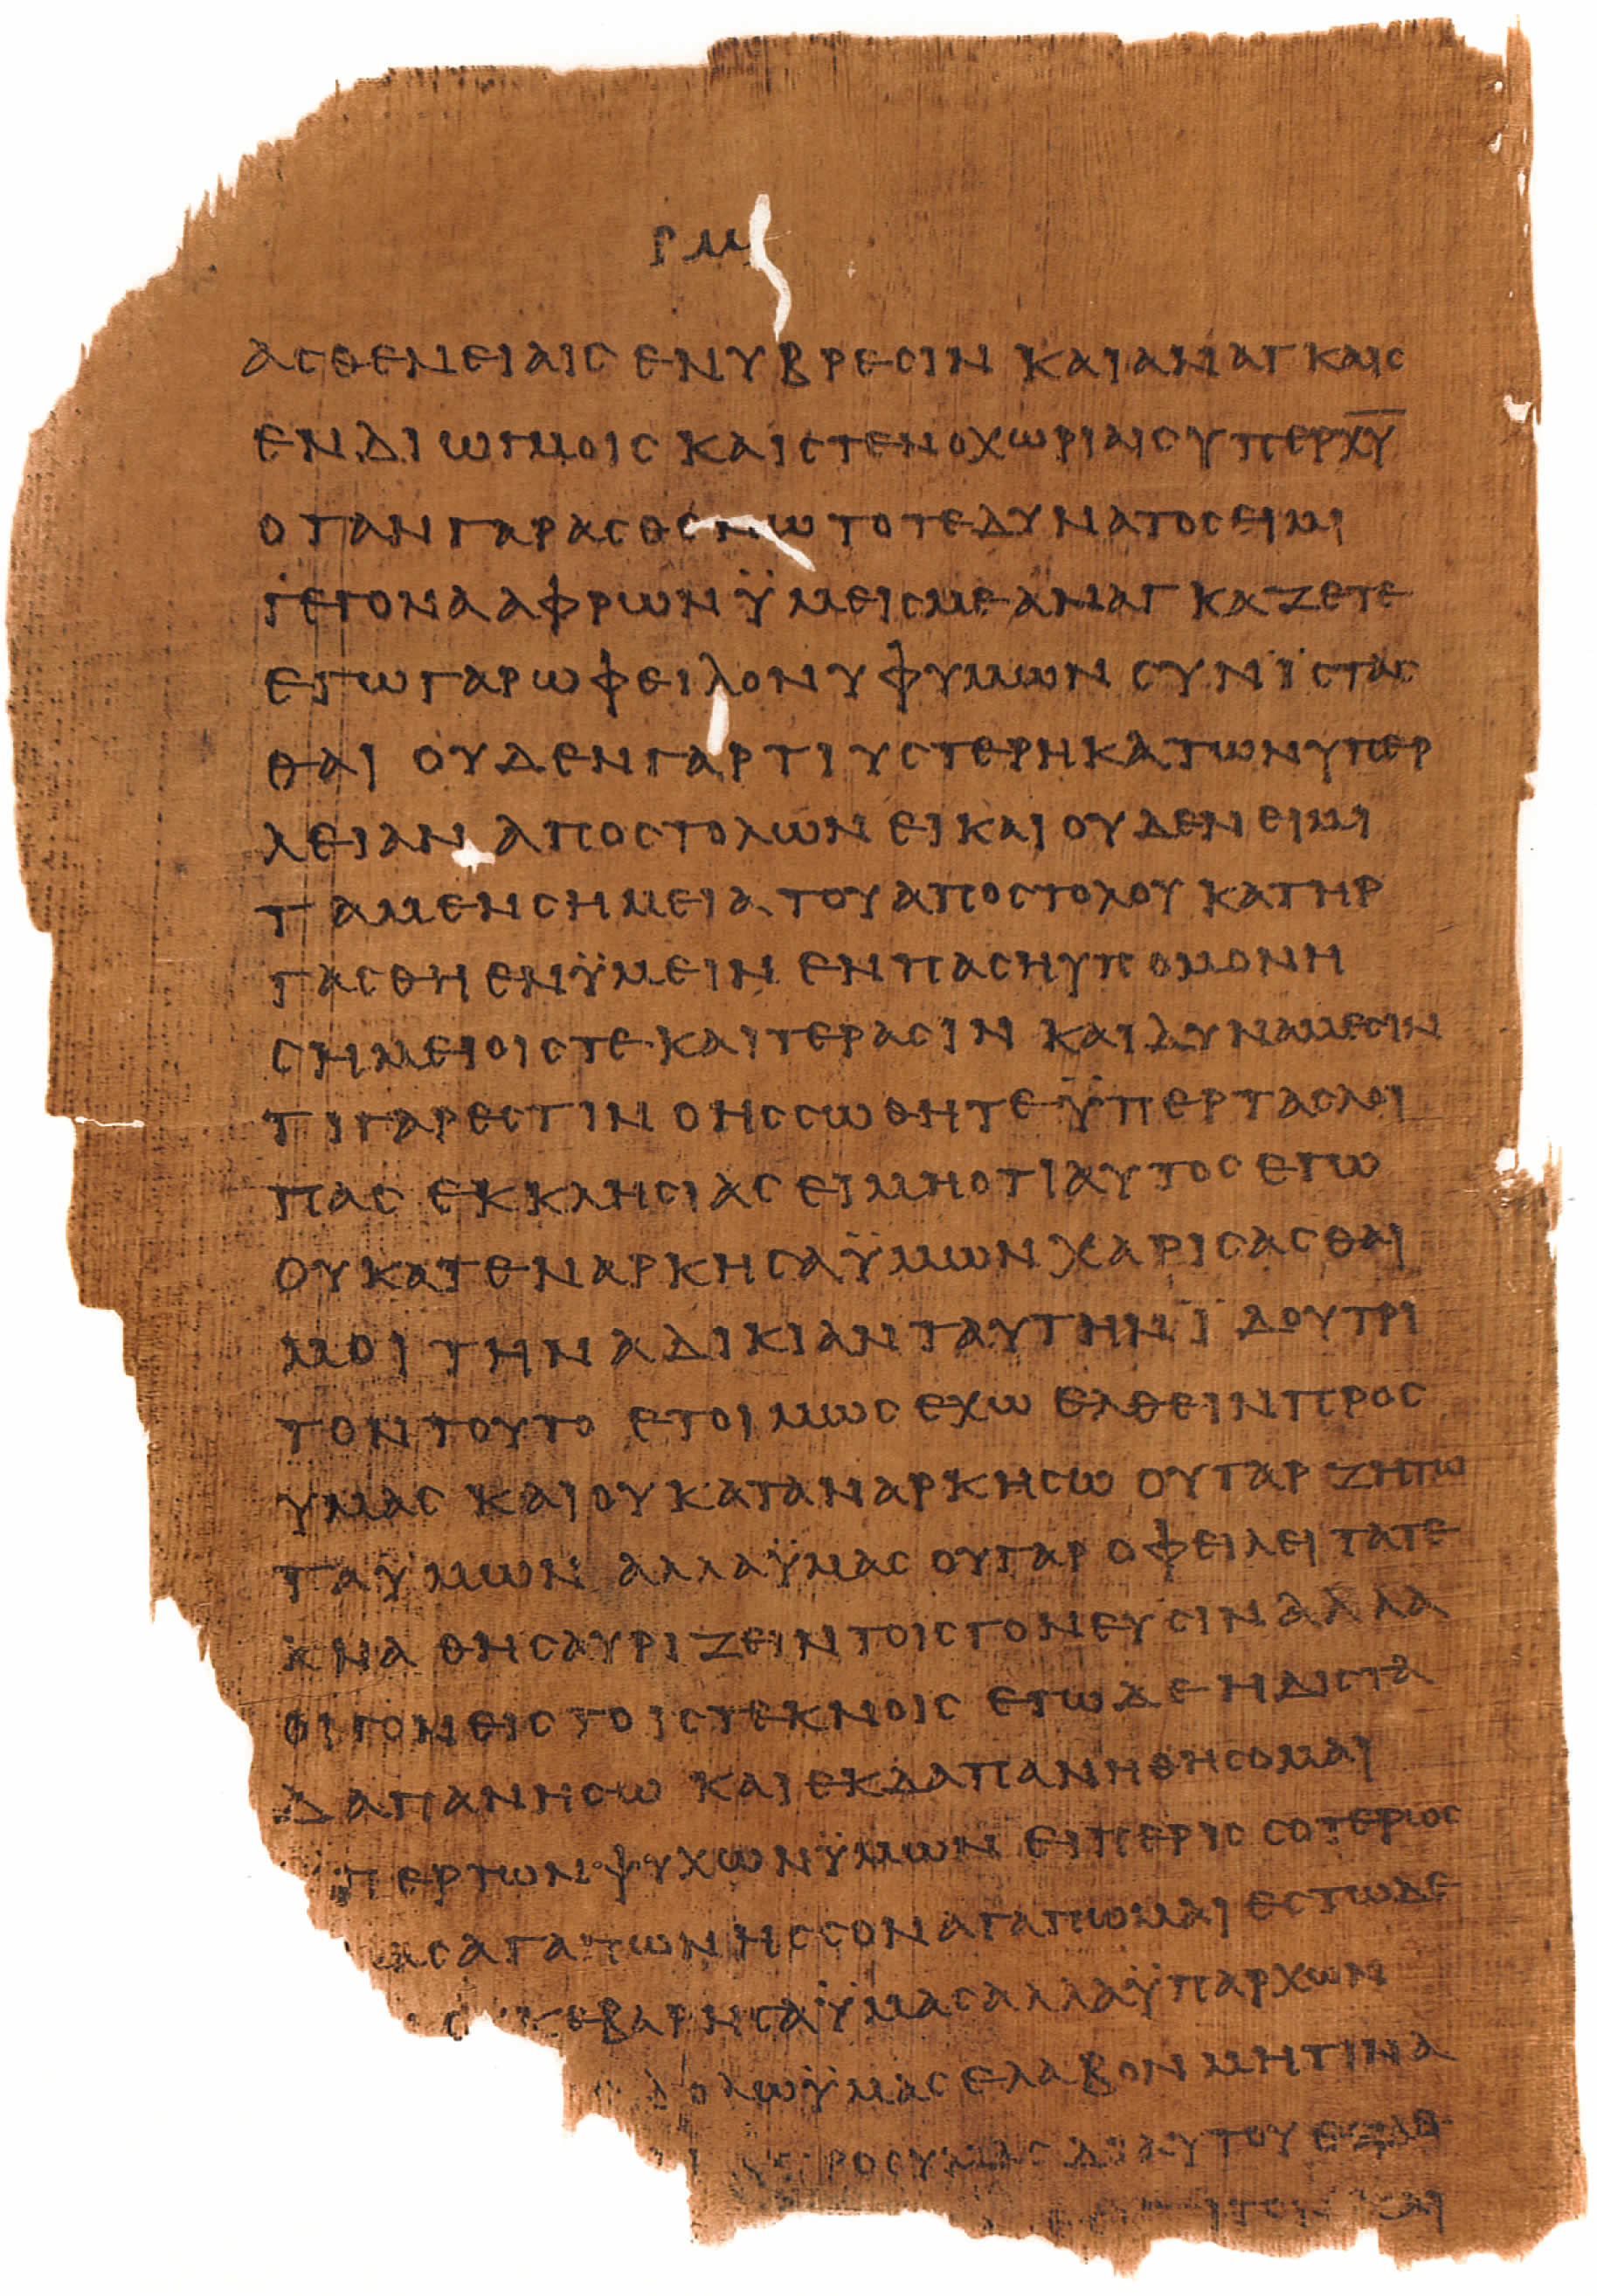 ΡΜ
ΑϹΘΕΝΕΙΑΙϹ ΕΝΥΒΡΕϹΙΝ ΚΑΙΑΝΑΓΚΑΙϹ
ΕΝΔΙΩΓΜΟΙϹ ΚΑΙϹΤΕΝΟΧΩΡΙΑΙϹΥΠΕΡΧ̅Υ̅
ΟΤΑΝΓΑΡΑϹΘΕΝΩ ΤΟΤΕΔΥΝΑΤΟϹΕΙΜΙ
ΓΕΓΟΝΑΑΦΡΩΝ ΫΜΕΙϹΜΕΑΝΑΓΚΑΖΕΤΕ
ΕΓΩΓΑΡΩΦΕΙΛΟΝΥΦΥΜΩΝ ϹΥΝΪϹΤΑϹ
ΘΑΙ ΟΥΔΕΝΓΑΡΤΙΥϹΤΕΡΗΚΑΤΩΝΥΠΕΡ
ΛΕΙΑΝ ΑΠΟϹΤΟΛΩΝ ΕΙΚΑΙΟΥΔΕΝΕΙΜΙ
ΤΑΜΕΝϹΗΜΕΙΑΤΟΥΑΠΟϹΤΟΛΟΥ ΚΑΤΗΡ
ΓΑϹΘΗΕΝΫΜΕΙΝ ΕΝΠΑϹΗΥΠΟΜΟΝΗ
ϹΗΜΕΙΟΙϹΤΕΚΑΙΤΕΡΑϹΙΝ ΚΑΙΔΥΝΑΜΕϹΙΝ
ΤΙΓΑΡΕϹΤΙΝ ΟΗϹϹΩΘΗΤΕΫΠΕΡΤΑϹΛΟΙ
ΠΑϹ ΕΚΚΛΗϹΙΑϹ ΕΙΜΗΟΤΙΑΥΤΟϹ ΕΓΩ
ΟΥΚΑΤΕΝΑΡΚΗϹΑΫΜΩΝ ΧΑΡΙϹΑϹΘΑΙ
ΜΟΙ ΤΗΝΑΔΙΚΙΑΝΤΑΥΤΗΝ ΪΔΟΥΤΡΙ
ΤΟΝΤΟΥΤΟ ΕΤΟΙΜΩϹ ΕΧΩ ΕΛΘΕΙΝΠΡΟϹ
ΥΜΑϹ ΚΑΙΟΥΚΑΤΑΝΑΡΚΗϹΩ ΟΥΓΑΡ ΖΗΤΩ
ΤΑΫΜΩΝ ΑΛΛΑΫΜΑϹ ΟΥΓΑΡ ΟΦΕΙΛΕΙ ΤΑΤΕ
ΚΝΑ ΘΗϹΑΥΡΙΖΕΙΝΤΟΙϹΓΟΝΕΥϹΙΝΑΛΛΑ
ΟΙΓΟΝΕΙϹΤΟΙϹΤΕΚΝΟΙϹ ΕΓΩΔΕΗΔΙϹΤΑ
ΔΑΠΑΝΗϹΩ ΚΑΙΕΚΔΑΠΑΝΗΘΗϹΟΜΑΙ
ΠΕΡΤΩΝΨΥΧΩΝΫΜΩΝ ΕΙΠΕΡΙϹϹΟΤΕΡΩϹ
ΜΑϹΑΓΑΠΩΝΗϹϹΟΝΑΓΑΠΩΜΑΙ ΕϹΤΩΔΕ
ΕΒΑΡΗϹΑΫΜΑϹΑΛΛΑΫΠΑΡΧΩΝ
ΔΟΛΩΫΜΑϹΕΛΑΒΟΝΜΗΤΙΝΑ
ΡΟϹΥΜΑϹ ΔΙΑΥΤΟΥ